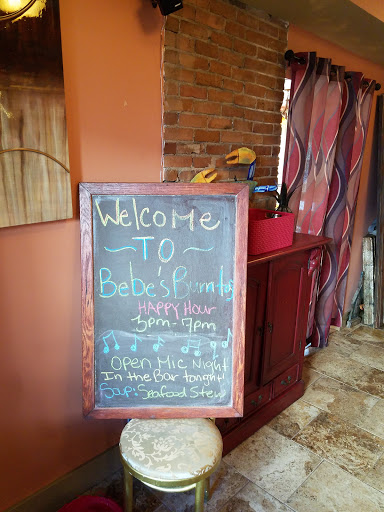 Welcome
~ TO ~
Bebe's Burritos
HAPPY Hour
3pm - 7pm
Open Mic Night
In the Bar tonight!
Soup: Seafood Stew